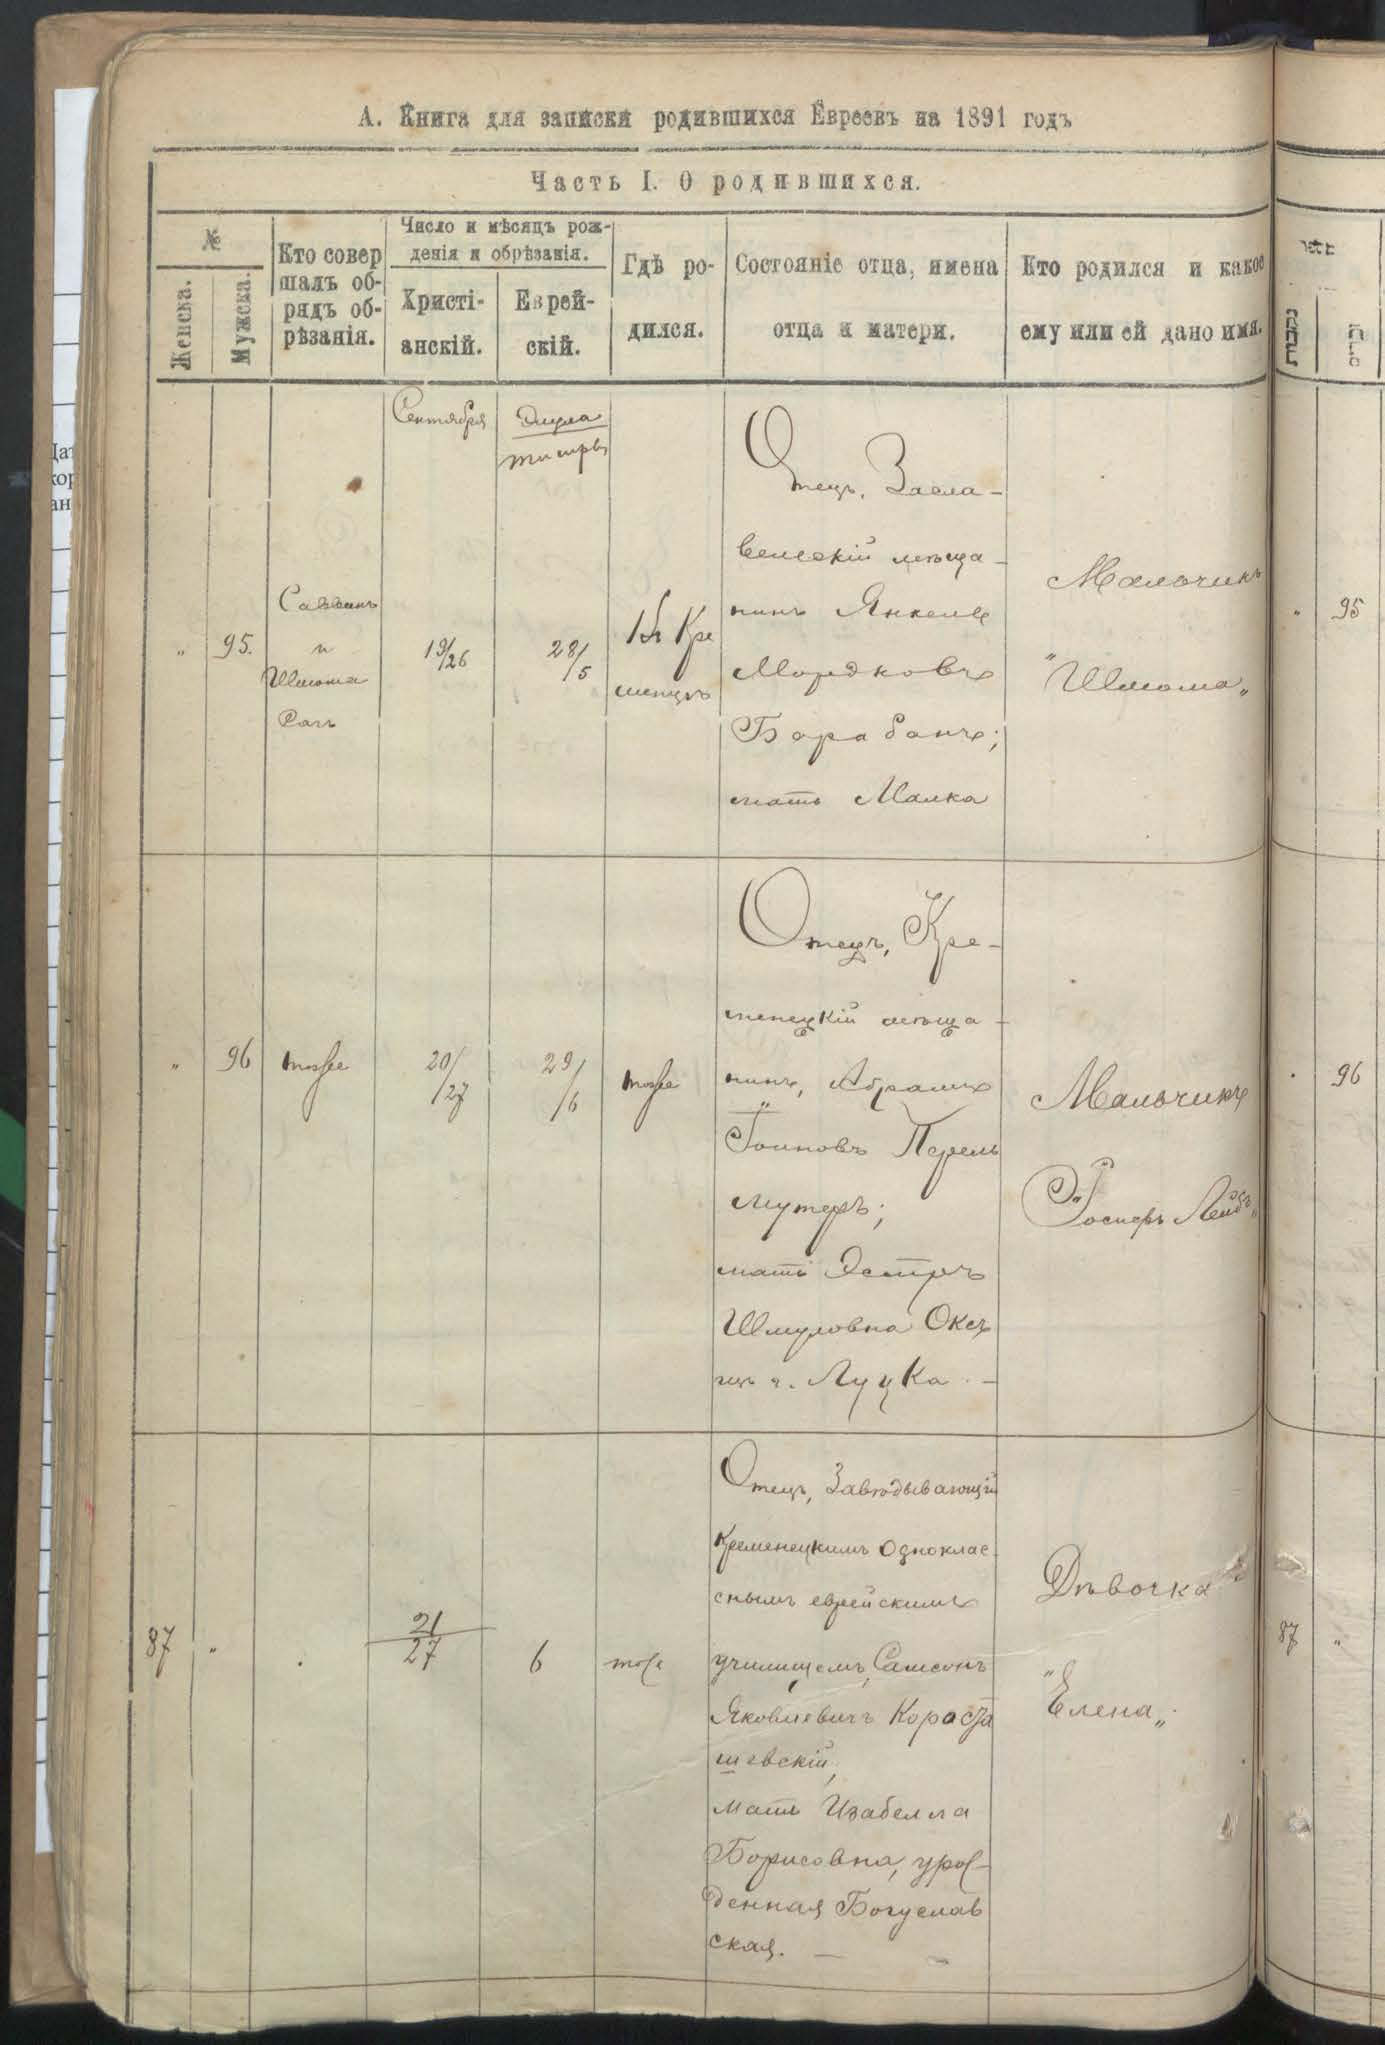 А. Книга для записки родившихся Евреевъ на 1891 годъ
Часть I. О родившихся.
№
Женска.
Мужска.
Кто совер
шалъ об-
рядъ об-
рѣзанія.
Число и мѣсяцъ рож-
денія и обрѣзанія.
Христі-
анскій.
Еврей-
скій.
Гдѣ ро-
дился.
Состояніе отца, имена
отца и матери.
Кто родился и какое
ему или ей дано имя.
Сентября
Элула
тишры
„
95.
и
Шлиома
19/26
28/5
Въ Кре
менцѣ
Отецъ, Засла-
вельскій мѣща-
нинъ Янкель
Мордковъ
Барабанъ;
мать Малка
Мальчикъ
"Шлиома„
„
96
тоже
20/27
29/6
тоже
Отецъ, Кре-
менецкій мѣща-
нинъ, Абрамъ
Іоиновъ Перель
мутеръ;
мать Эстеръ
Шмуловна Оксъ
изъ г. Луцка. —
Мальчикъ
"Іосперъ Лейбъ„
87
„
21/27
6
тоже
Отецъ, Завѣдывающій
Кременецкимъ однoклас-
снымъ еврейскимъ
училищемъ, Самсонъ
Яковлевичъ Короста
шевскій,
мать Изабелла
Борисовна, урож-
денная Богуслав
ская. —
Дѣвочка
"Елена„
95
96
87
„
נקבות
זכרים